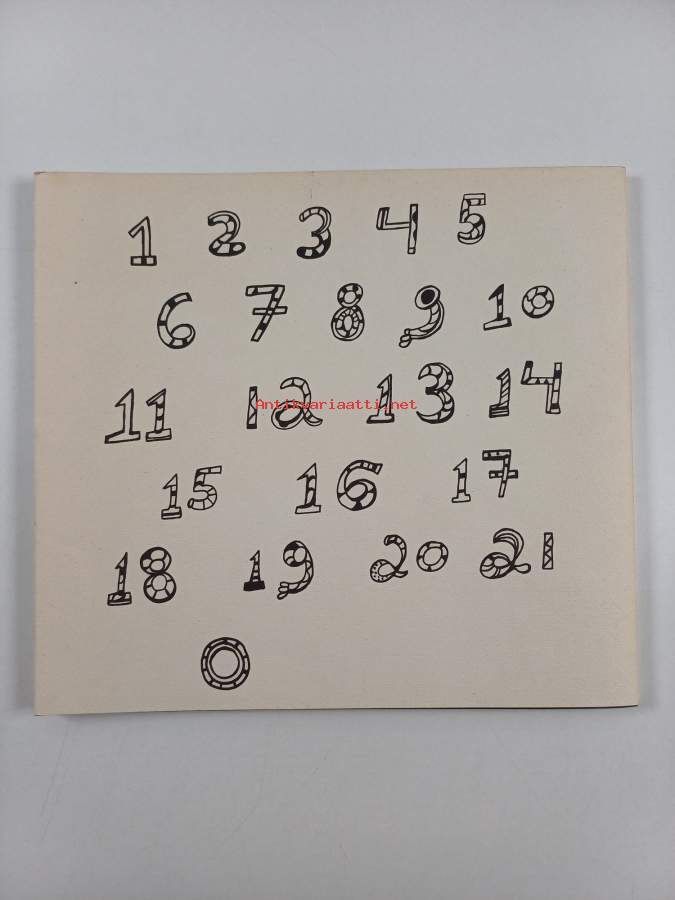 1 2 3 4 5
6 7 8 9 10
11 12 13 14
Antikvariaatti.net
15 16 17
18 19 20 21
0